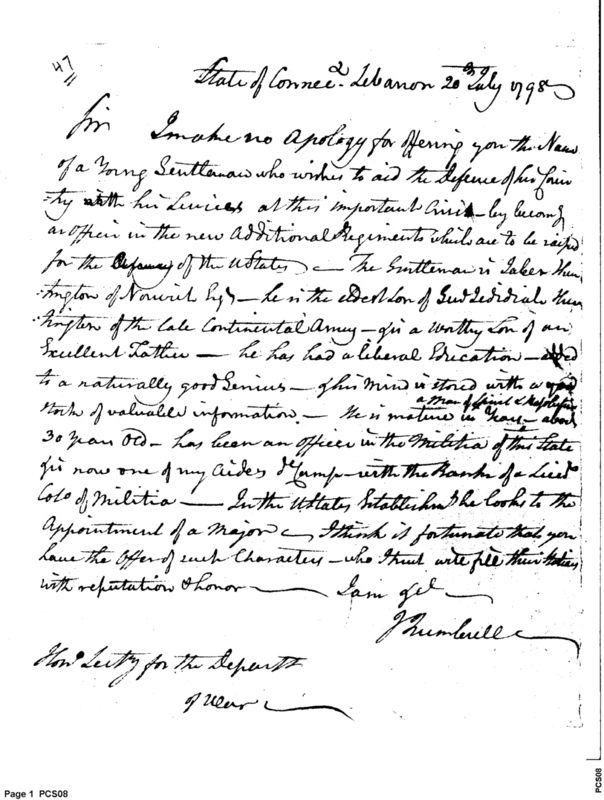 47
State of Connect. Lebanon 20th July 1798
Sir I make no Apology for offering you the Name
of a Young Gentleman who wishes to aid the Defence of his Coun
-try with his Services at this important Crisis - by becomg
an officer in the new Additional Regiments which are to be raised
for the of the UStates - The Gentleman is Jabez Hun
-tington of Norwich Esqr - he is the eldest Son of Genl Jedidiah Hun
-tington of the late Continental Army - & is a worthy Son of an
Excellent Father - he has had a liberal Education - added
to a naturally good Genius - & his Mind is stored with a good
a Man of Spirit & Resolution
stock of valuable information. - He is mature in Years - about
30 Years Old - has been an officer in the Militia of this State
& is now one of my Aides d'Camp - with the Rank of a Lieut
Colo of Militia - In the UStates Establishmt he looks to the
Appointment of a Major - I think it fortunate that you
have the Offer of such Characters - who I trust will fill their Stations
with reputation & honor - I am &c
J Trumbull
Honl Secrty for the Departt
of War
Page 1 PCS08
PCS08